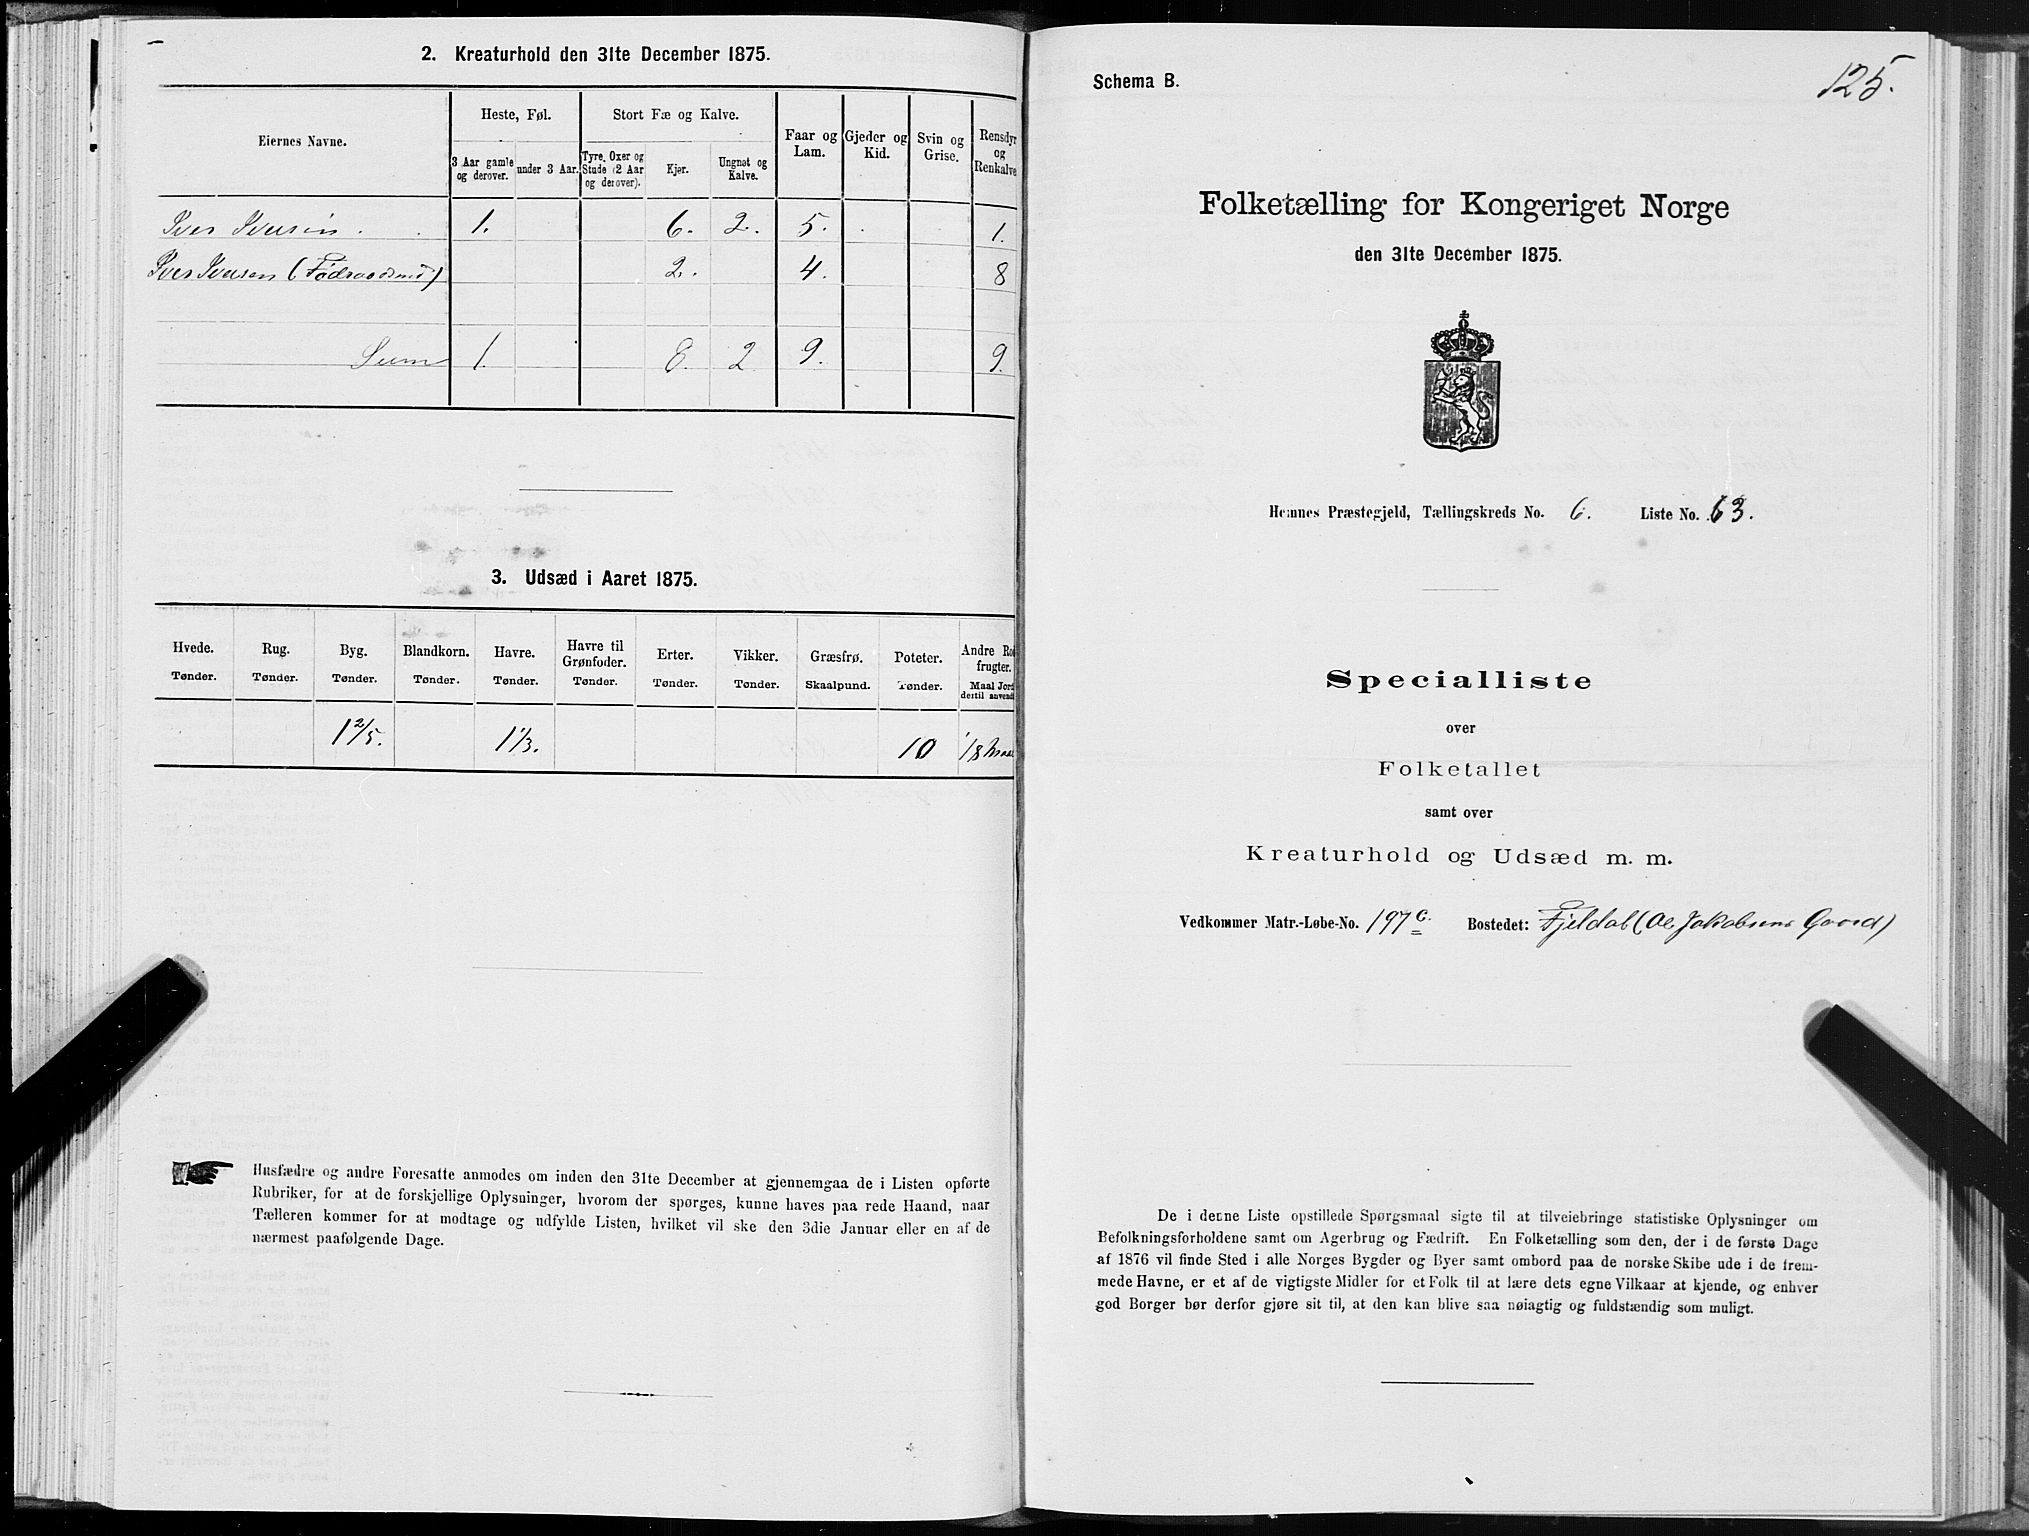 2. Kreaturhold den 31te December 1875.
Eiernes Navne.
Heste, Føl.
Stort Fæ og Kalve.
3 Aar gamle og derover.
under 3 Aar.
Tyre, Oxer og Stude (2 Aar og derover).
Kjør.
Ungnøt og Kalve.
Faar og Lam.
Gjeder og Kid.
Svin og Grise.
Rensdyr og Renkalve
Iver Iversen . . 1. 6. 2. 5. . . 1.
Iver Iversen (Føderaadsmd) 2. 4. 8
Sum 1. 8. 2 9. 9.
3. Udsæd i Aaret 1875.
Hvede. Rug. Byg. Blandkorn. Havre. Havre til Grønfoder. Erter. Vikker. Græsfrø. Poteter. Andre Ro frugter.
Tønder. Tønder. Tønder. Tønder. Tønder. Tønder. Tønder. Tønder. Skaalpund. Tønder. Maal Jord dertil anvend
1 2/5. 1 1/3. 10 1/8 Maal
Husfædre og andre Foresatte anmodes om inden den 31te December at gjennemgaa de i Listen opførte
Rubriker, for at de forskjellige Oplysninger, hvorom der spørges, kunne haves paa rede Haand, naar
Tælleren kommer for at modtage og udfylde Listen, hvilket vil ske den 3die Januar eller en af de
nærmest paafølgende Dage.
125.
Schema B.
Folketælling for Kongeriget Norge
den 31te December 1875.
Hemnes Præstegjeld, Tællingskreds No. 6. Liste No. 63.
Specialliste
over
Folketallet
samt over
Kreaturhold og Udsæd m. m.
Vedkommer Matr.-Løbe-No. 197 c. Bostedet: Fjeldal (Ole Jakobsens Gaard)
De i denne Liste opstillede Spørgsmaal sigte til at tilveiebringe statistiske Oplysninger om
Befolkningsforholdene samt om Agerbrug og Fædrift. En Folketælling som den, der i de første Dage
af 1876 vil finde Sted i alle Norges Bygder og Byer samt ombord paa de norske Skibe ude i de frem-
mede Havne, er et af de vigtigste Midler for et Folk til at lære dets egne Vilkaar at kjende, og enhver
god Borger bør derfor gjøre sit til, at den kan blive saa nøiagtig og fuldstændig som muligt.